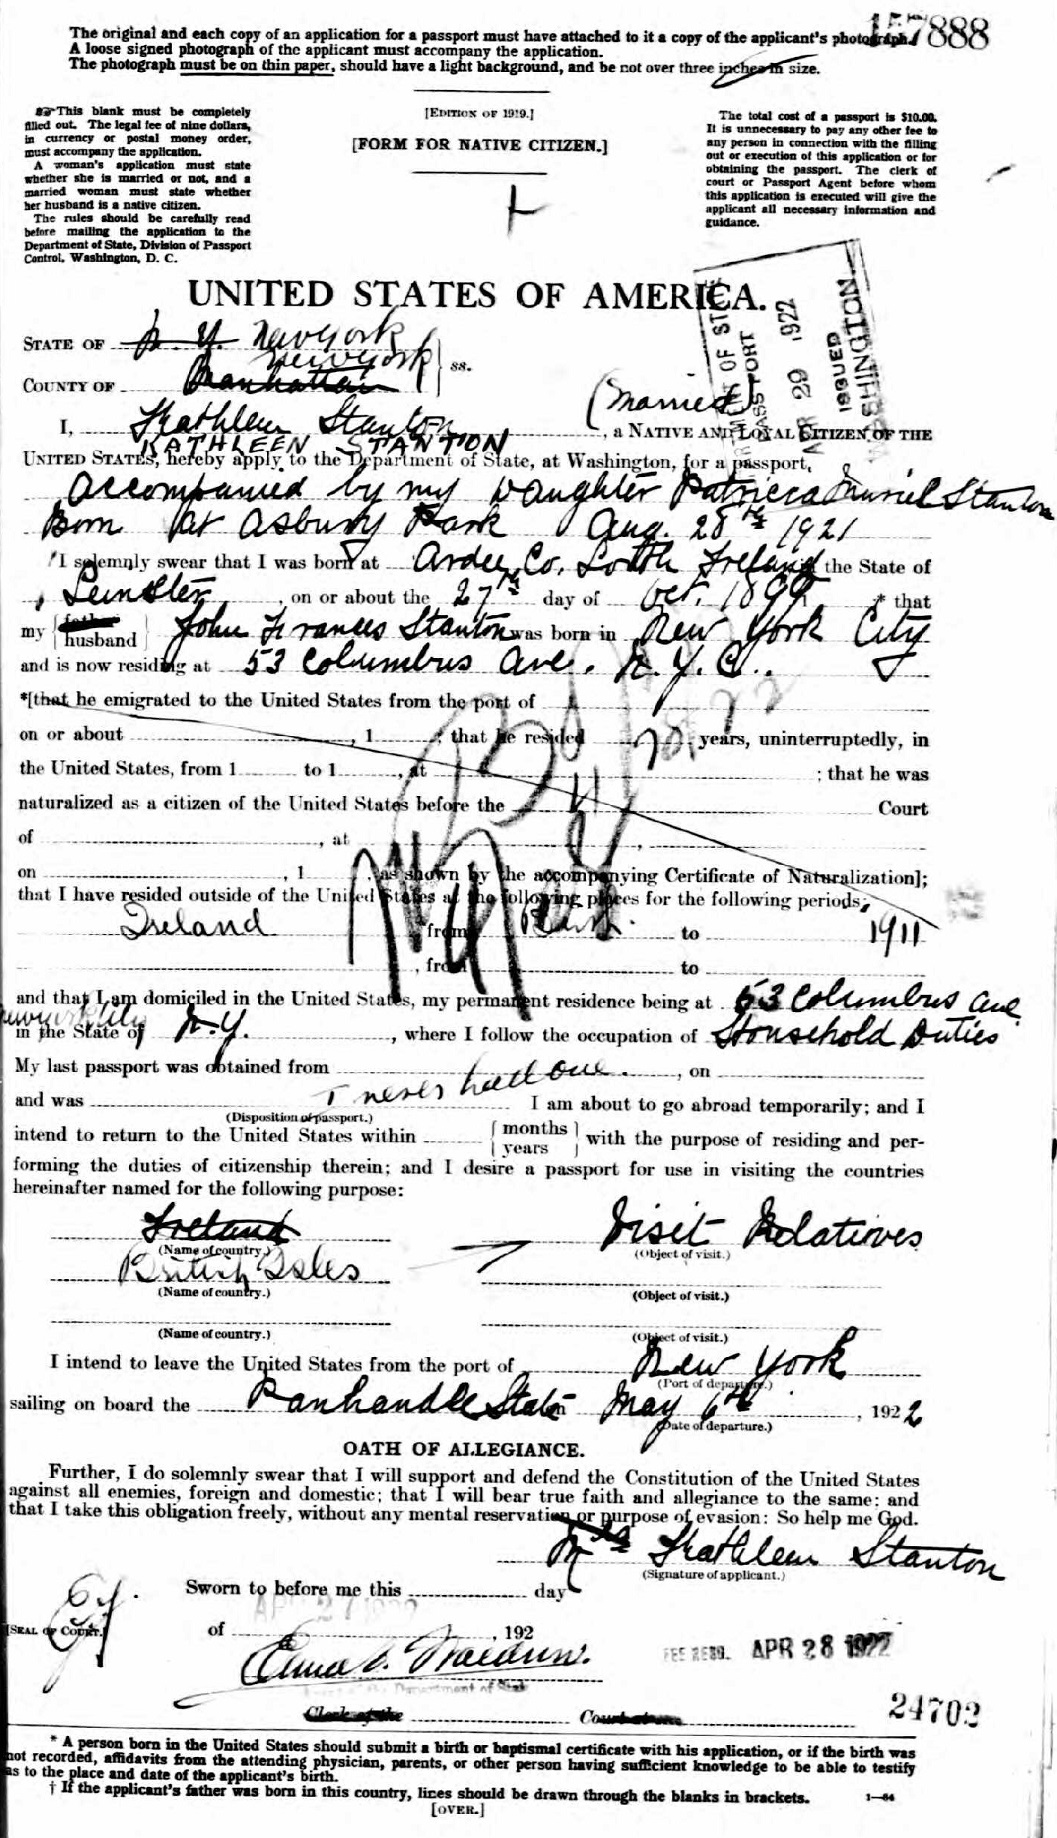 157888
The original and each copy of an application for a passport must have attached to it a copy of the applicant's photograph.
A loose signed photograph of the applicant must accompany the application.
The photograph must be on thin paper, should have a light background, and be not over three inches in size.
This blank must be completely
filled out. The legal fee of nine dollars,
in currency or postal money order,
must accompany the application.
A woman's application must state
whether she is married or not, and a
married woman must state whether
her husband is a native citizen.
The rules should be carefully read
before mailing the application to the
Department of State, Division of Passport
Control, Washington, D. C.
[EDITION OF 1919.]
[FORM FOR NATIVE CITIZEN.]
The total cost of a passport is $10.00.
It is unnecessary to pay any other fee to
any person in connection with the filling
out or execution of this application or for
obtaining the passport. The clerk of
court or Passport Agent before whom
this application is executed will give the
applicant all necessary information and
guidance.
UNITED STATES OF AMERICA.
PASSPORT
APR 29 1922
ISSUED
WASHINGTON
STATE OF N. Y. New York
COUNTY OF Manhattan New York } ss.
(Married)
I, Kathleen Stanton, a NATIVE AND LOYAL CITIZEN OF THE
KATHLEEN STANTON
UNITED STATES, hereby apply to the Department of State, at Washington, for a passport,
accompanied by my Daughter Patricia Muriel Stanton
Born at Asbury Park Aug. 28th 1921
I solemnly swear that I was born at Ardee, Co. Louth Ireland the State of
Leinster, on or about the 27th day of Oct. 1899 * that
my { father husband } John Frances Stanton was born in New York City
and is now residing at 53 Columbus Ave. N. Y. C.
*[that he emigrated to the United States from the port of
on or about , 1 ; that he resided years, uninterruptedly, in
the United States, from 1 to 1 , at ; that he was
naturalized as a citizen of the United States before the Court
of , at ,
on , 1 , as shown by the accompanying Certificate of Naturalization];
that I have resided outside of the United States at the following places for the following periods;
Ireland from Birth to 1911
, from to
and that I am domiciled in the United States, my permanent residence being at 53 Columbus Ave
New York City
in the State of N.Y., where I follow the occupation of Household Duties
My last passport was obtained from , on
I never had one.
and was I am about to go abroad temporarily; and I
(Disposition of passport.)
intend to return to the United States within { months years } with the purpose of residing and per-
forming the duties of citizenship therein; and I desire a passport for use in visiting the countries
hereinafter named for the following purpose:
Ireland Visit Relatives
(Name of country.) (Object of visit.)
British Isles
(Name of country.) (Object of visit.)
(Name of country.) (Object of visit.)
I intend to leave the United States from the port of New York
(Port of departure.)
sailing on board the Panhandle State on May 6th, 1922
(Date of departure.)
OATH OF ALLEGIANCE.
Further, I do solemnly swear that I will support and defend the Constitution of the United States
against all enemies, foreign and domestic; that I will bear true faith and allegiance to the same; and
that I take this obligation freely, without any mental reservation or purpose of evasion: So help me God.
Mrs Kathleen Stanton
(Signature of applicant.)
Sworn to before me this day
APR 27 1922
[SEAL OF COURT.]
of , 192
FEE RECD. APR 28 1922
Department of State
Clerk of the Court
24702
* A person born in the United States should submit a birth or baptismal certificate with his application, or if the birth was
not recorded, affidavits from the attending physician, parents, or other person having sufficient knowledge to be able to testify
as to the place and date of the applicant's birth.
† If the applicant's father was born in this country, lines should be drawn through the blanks in brackets. 1—84
[OVER.]